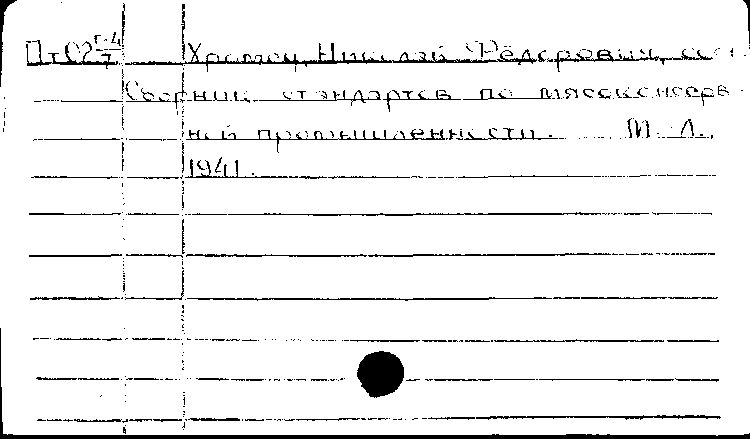 Николай Фёдорович, сост.
Сборник стандартов по мясоконсерв-
ной промышленности. М.-Л.,
1941.